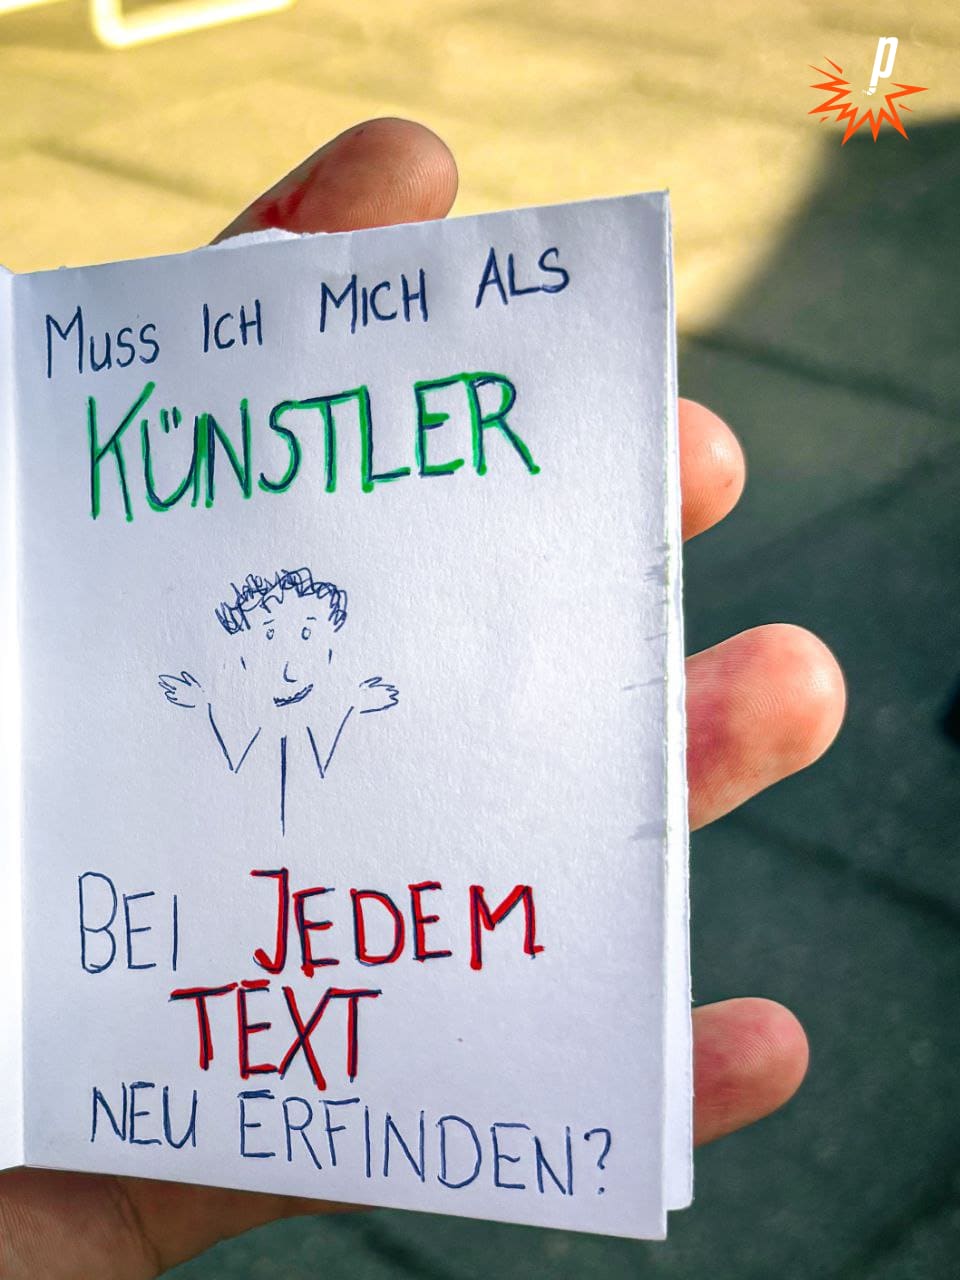 p
Muss ICH MICH ALS
KÜNSTLER
BEI JEDEM
TEXT
NEU ERFINDEN?